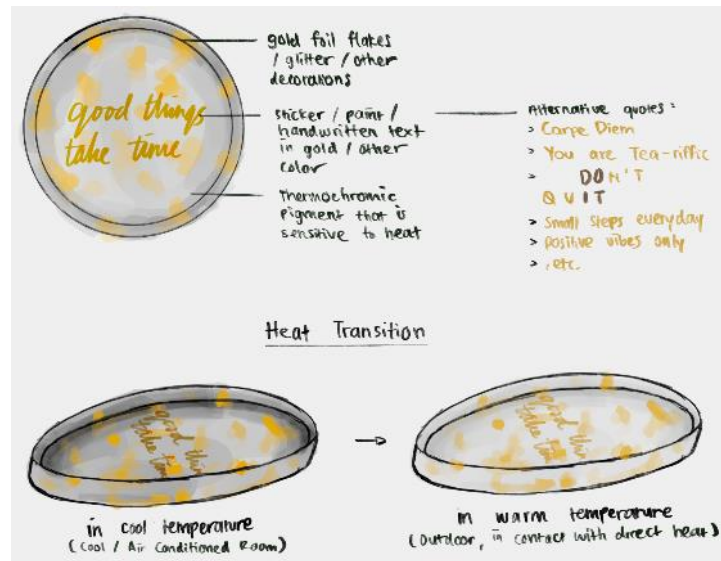 gold foil flakes
/ glitter / other
decorations
good things
take time
sticker / paint /
handwritten text
in gold / other
color
Thermochromic
pigment that is
sensitive to heat
Alternative quotes :
> Carpe Diem
> You are Tea-riffic
> DON'T
QUIT
> Small steps everyday
> positive vibes only
> , etc.
Heat Transition
good thin
take tim
in cool temperature
(Cool / Air Conditioned Room)
good thin
take tim
in warm temperature
(Outdoor, in contact with direct heat)